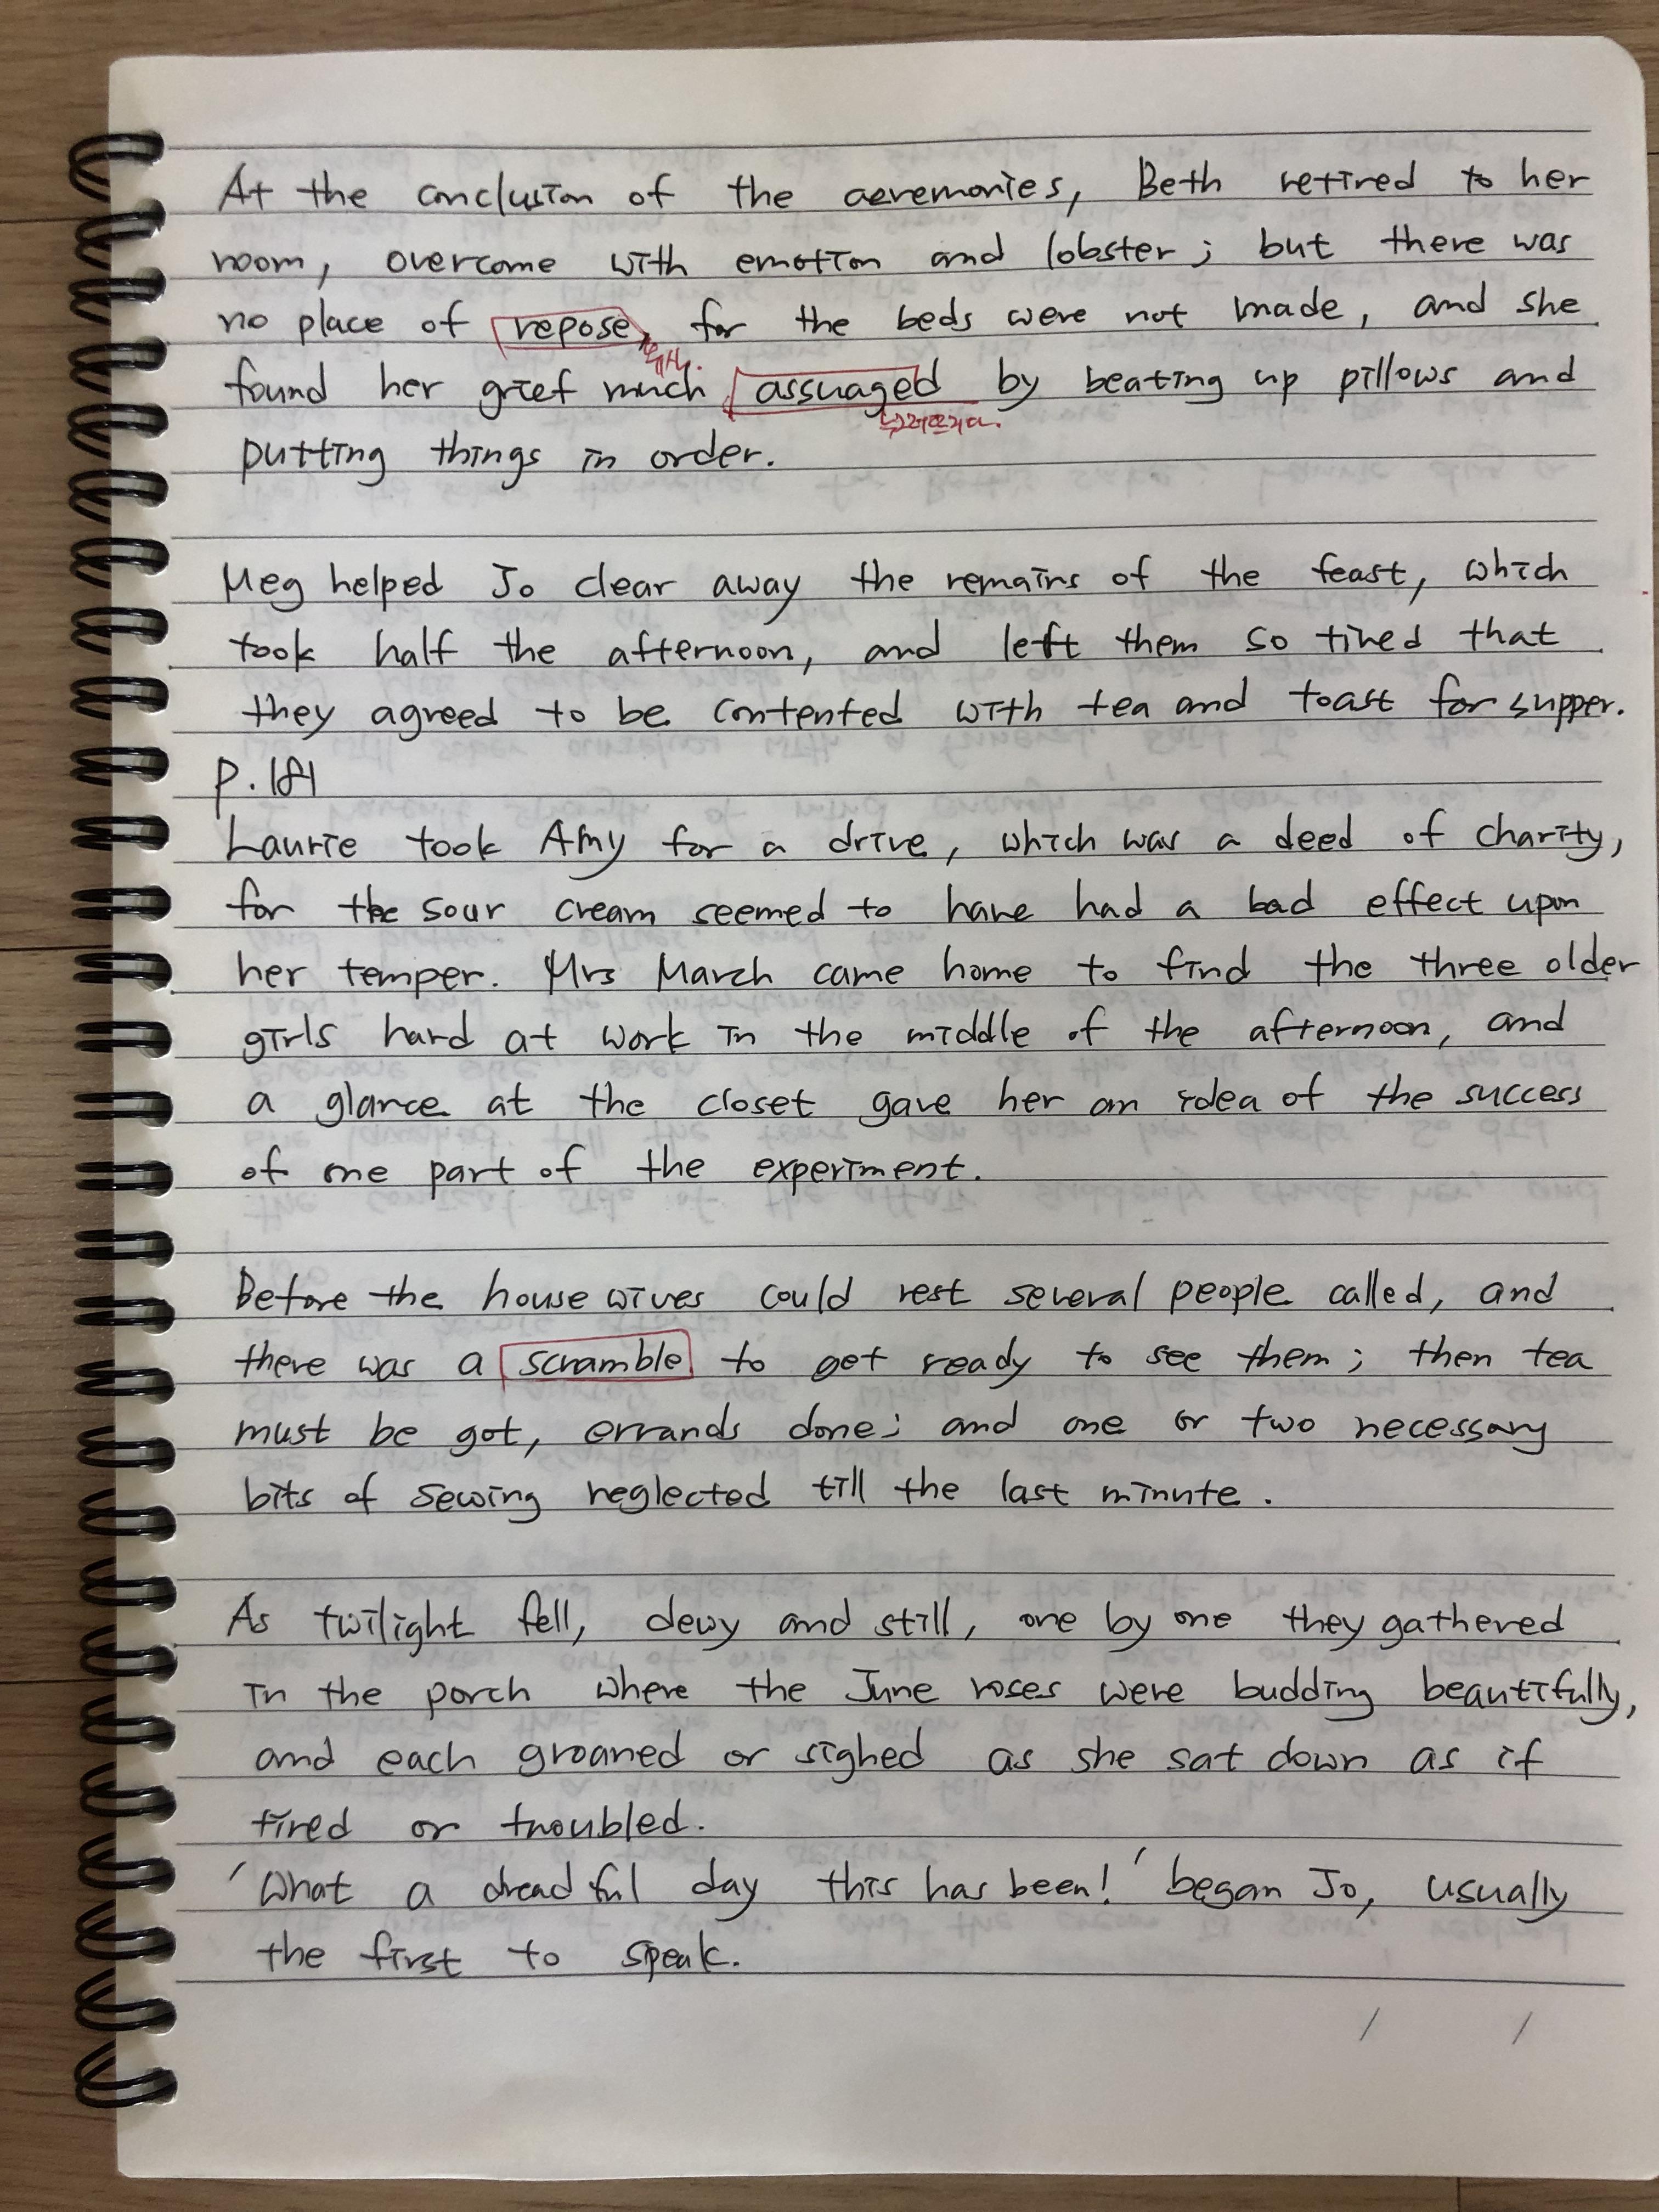 At the conclusion of the aeremonies, Beth retired to her
room, overcome with emotion and lobster; but there was
no place of repose, for the beds were not made, and she
휴식.
found her grief much assuaged by beating up pillows and
누그러뜨리다.
putting things in order.
Meg helped Jo clear away the remains of the feast, which
took half the afternoon, and left them so tired that
they agreed to be contented with tea and toast for supper.
P. 181
Laurie took Amy for a drive, which was a deed of charity,
for the sour cream seemed to have had a bad effect upon
her temper. Mrs March came home to find the three older
girls hard at work in the middle of the afternoon, and
a glance at the closet gave her an idea of the success
of one part of the experiment.
Before the housewives could rest several people called, and
there was a scramble to get ready to see them; then tea
must be got, errands done; and one or two necessary
bits of sewing neglected till the last minute.
As twilight fell, dewy and still, one by one they gathered
in the porch where the June roses were budding beautifully,
and each groaned or sighed as she sat down as if
tired or troubled.
'What a dreadful day this has been!' began Jo, usually
the first to speak.